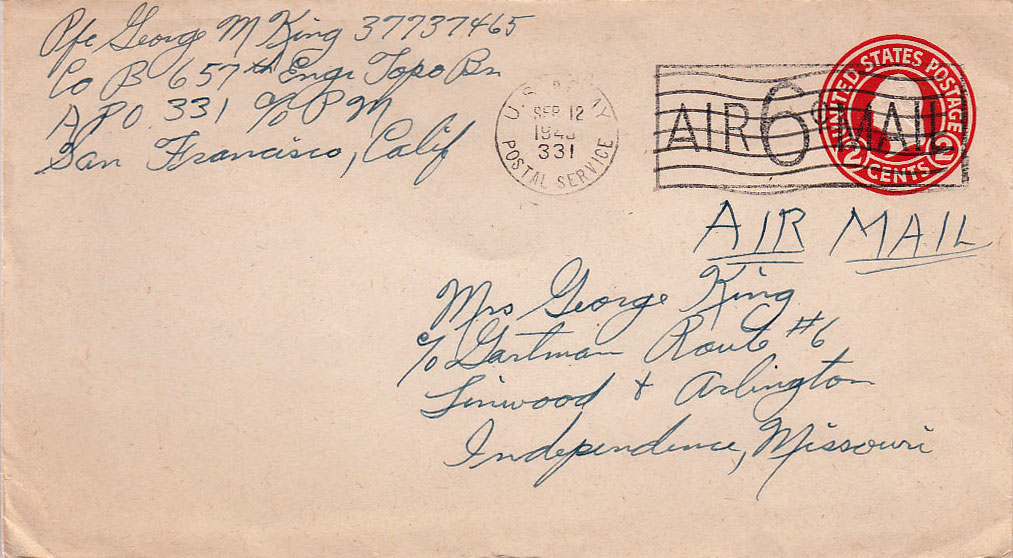 Pfc George M King 37737465
Co B 657th Engr Topo Bn
APO 331 c/o PM
San Francisco, Calif
U.S. ARMY
SEP 12
331
POSTAL SERVICE
AIR 6¢ MAIL
UNITED STATES POSTAGE
2 CENTS 2
AIR MAIL
Mrs George King
c/o Gartman Route #6
Linwood & Arlington
Independence, Missouri